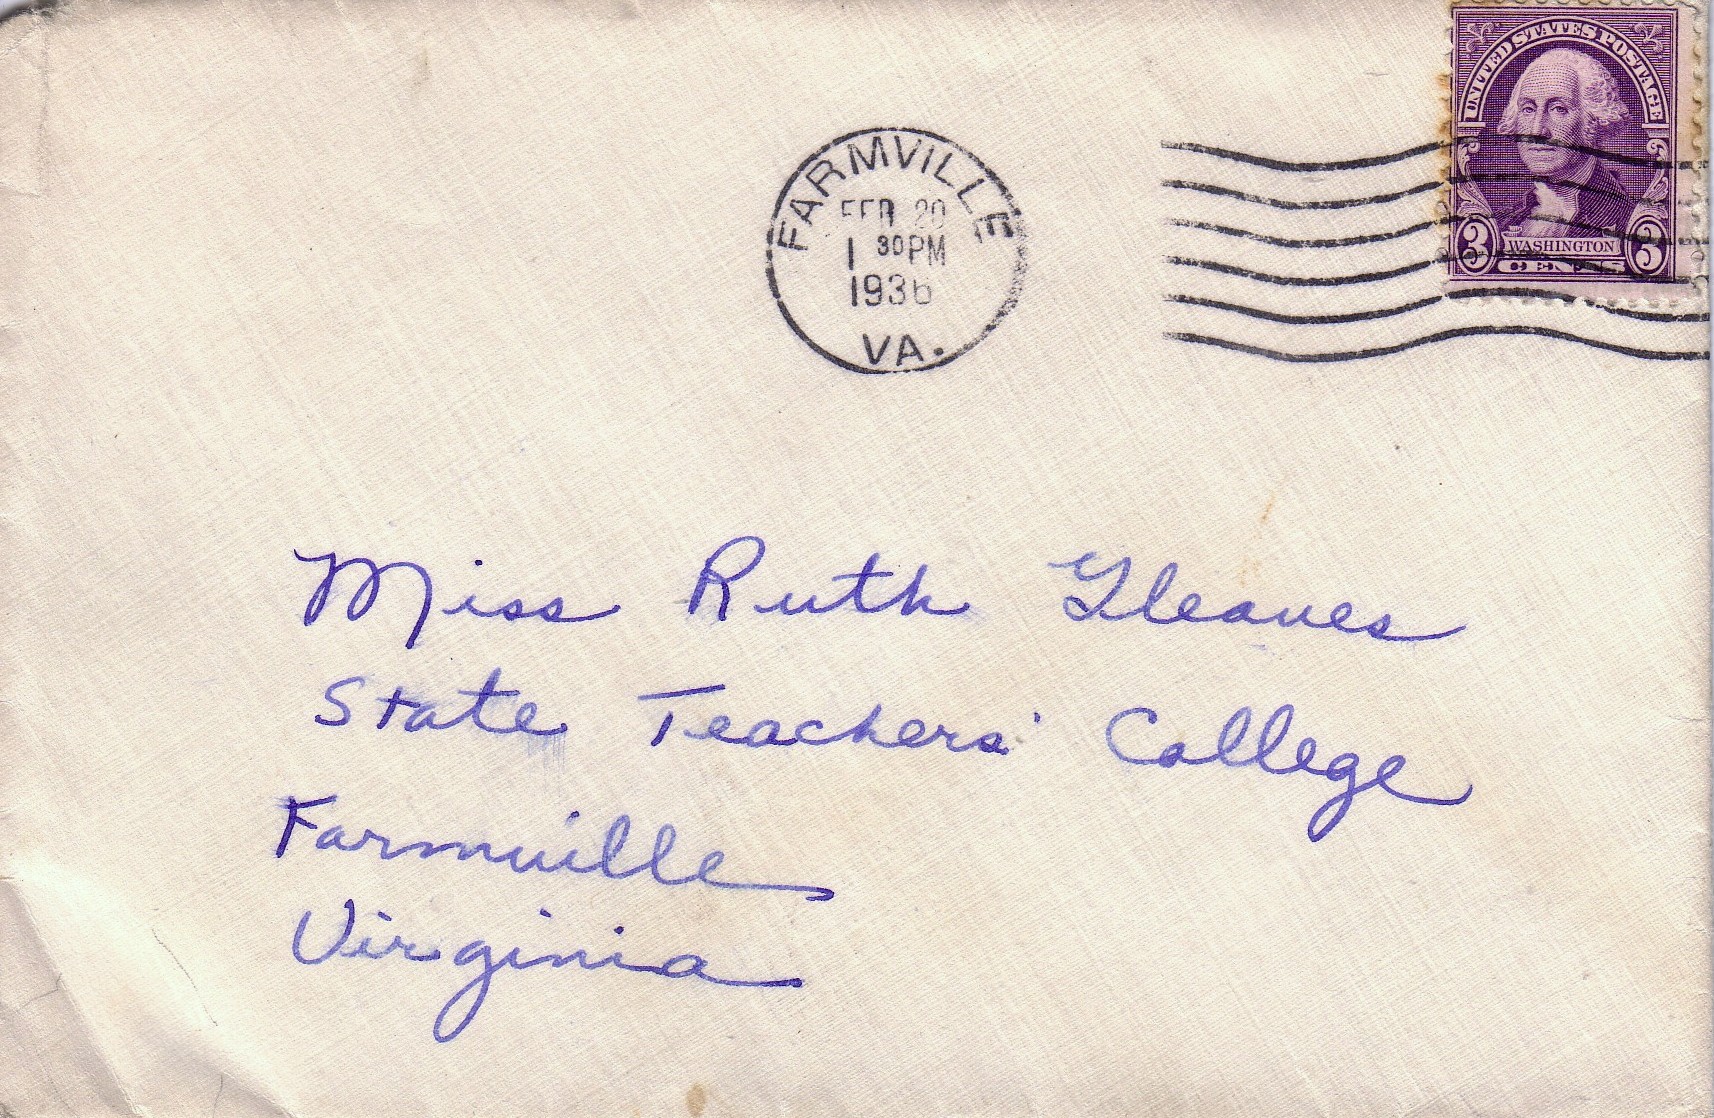 UNITED STATES POSTAGE
3 WASHINGTON 3
CENTS
FARMVILLE
FEB 20
1 30 PM
1936
VA.
Miss Ruth Gleaves
State Teachers' College
Farmville
Virginia